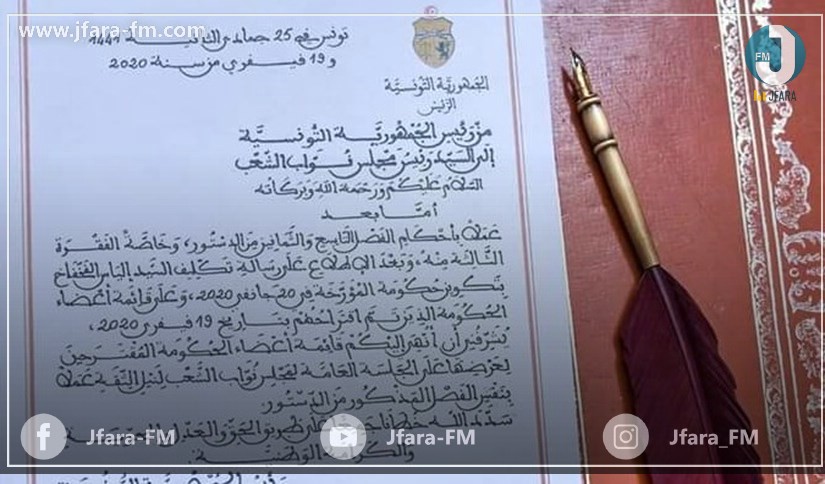 www.jfara-fm.com
تونس في 25 جمادى الثانية 1441
و19 فيفري من سنة 2020
FM
JFARA
الجمهورية التونسية
الرئيس
من رئيس الجمهورية التونسية
إلى السيد رئيس مجلس نواب الشعب
السلام عليكم ورحمة الله وبركاته
أما بعد
عملا بأحكام الفصل التاسع والثمانين من الدستور، وخاصة الفقرة
الثالثة منه، وبعد الاطلاع على رسالة تكليف السيد إلياس الفخفاخ
بتكوين حكومة المؤرخة في 20 جانفي 2020، وعلى قائمة أعضاء
الحكومة الذين تم اقتراحهم بتاريخ 19 فيفري 2020،
يشرفني أن أنهي إليكم قائمة أعضاء الحكومة المقترحين
لعرضها على الجلسة العامة لمجلس نواب الشعب لنيل الثقة عملا
بنفس الفصل المذكور من الدستور
سدد الله خطانا جميعا على طريق الحق والعدل والحرية
والكرامة الوطنية.
Jfara-FM
Jfara-FM
Jfara_FM